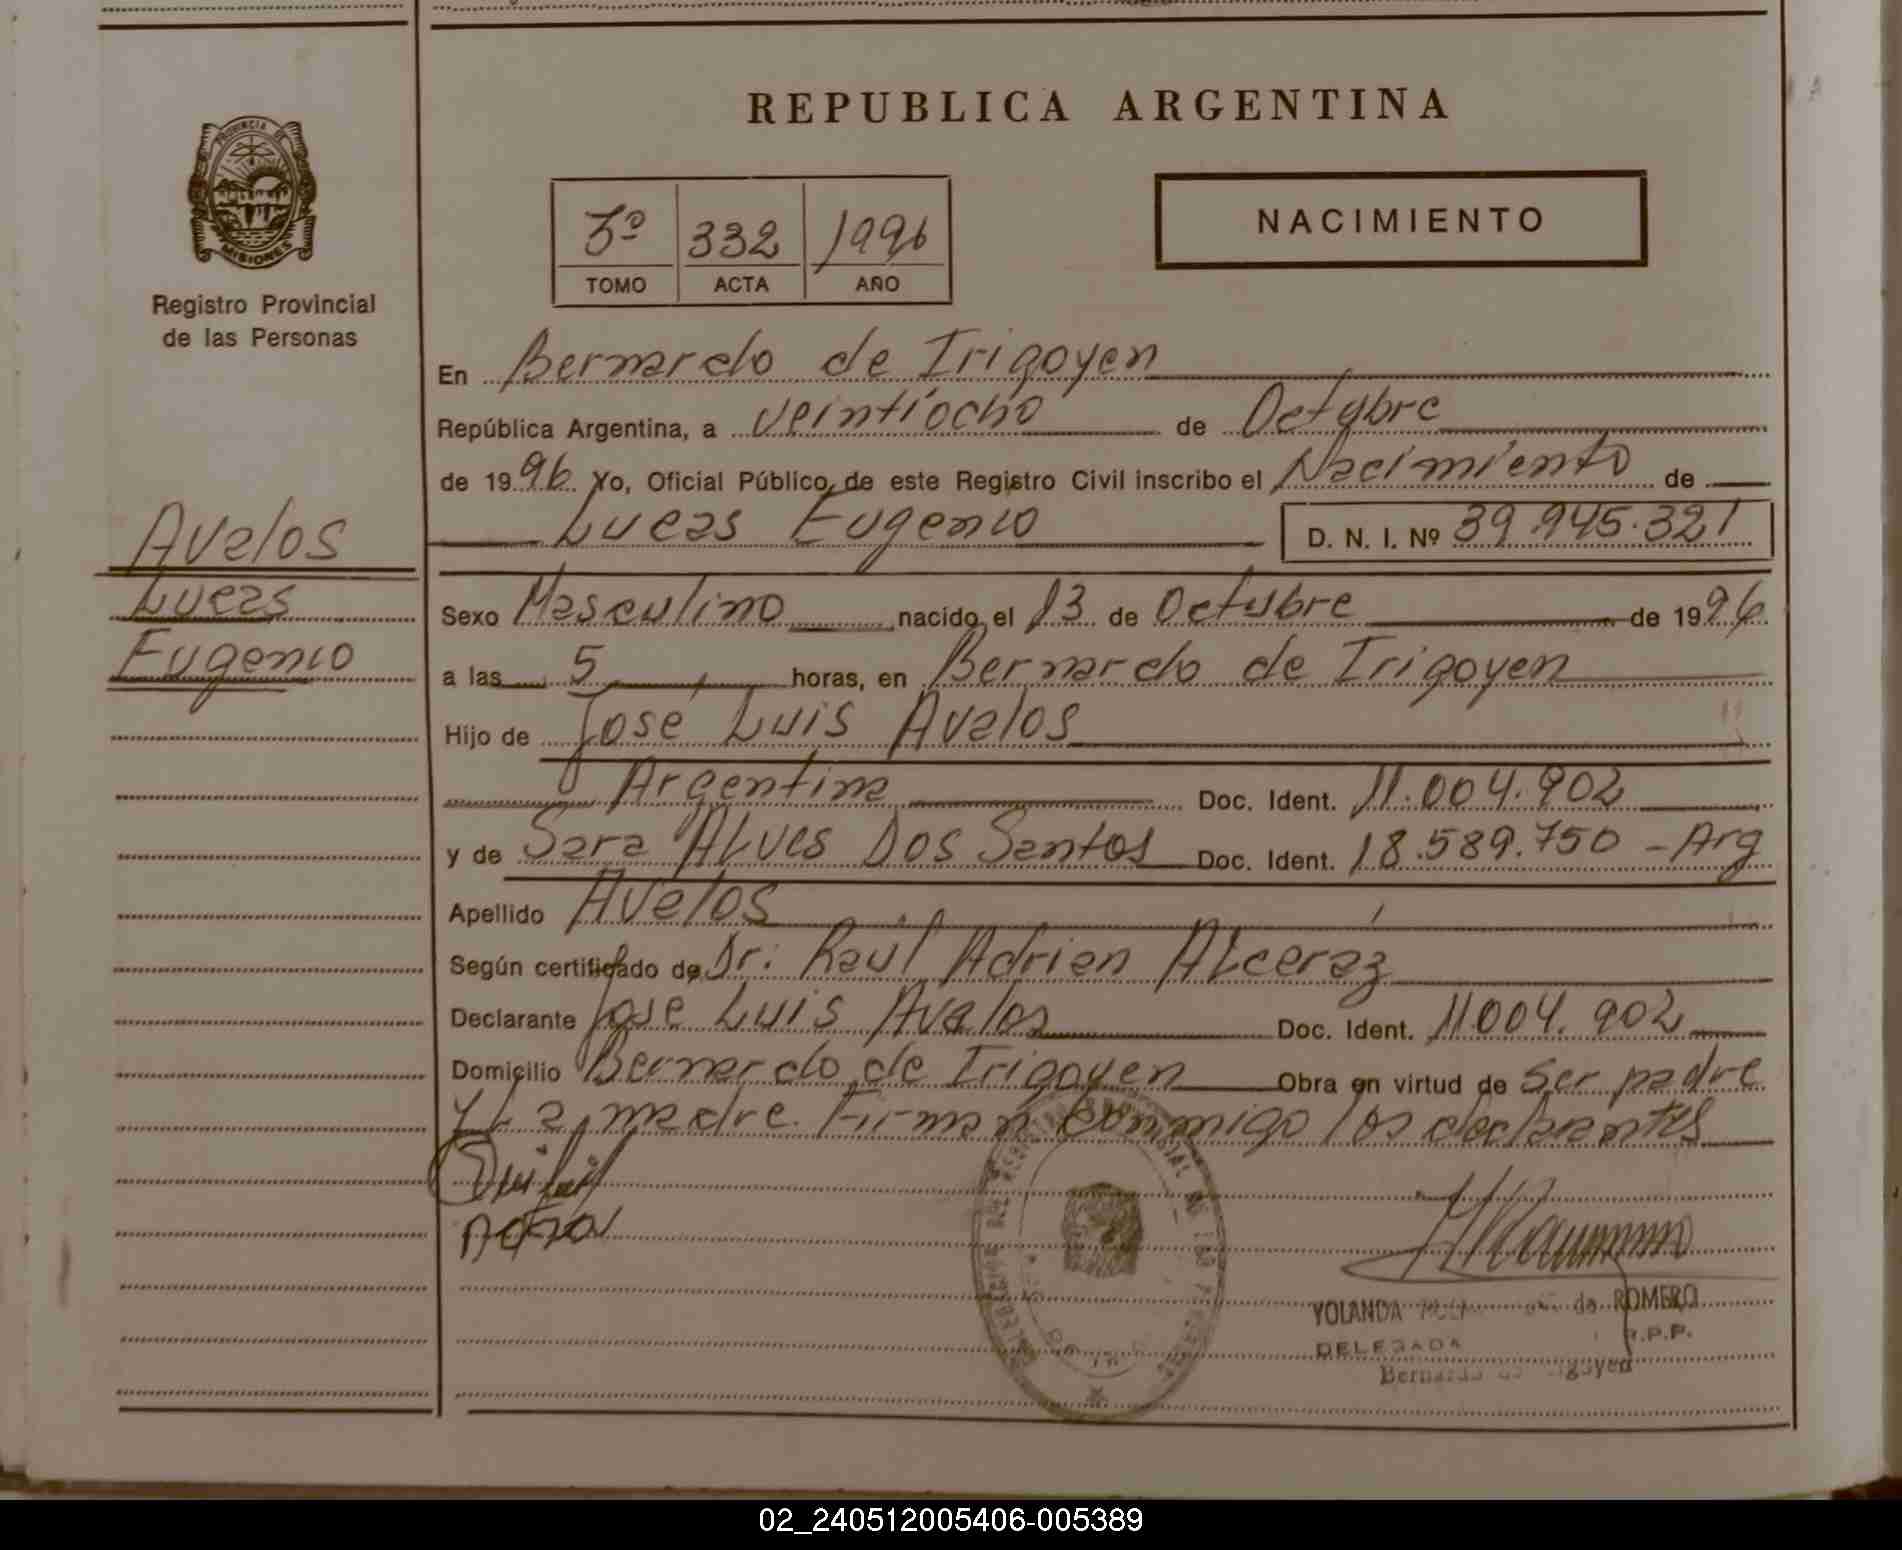 REPUBLICA ARGENTINA
PROVINCIA DE
MISIONES
Registro Provincial
de las Personas
3º 332 1996
TOMO ACTA AÑO
NACIMIENTO
En Bernardo de Irigoyen
República Argentina, a veintiocho de Octubre
de 1996 Yo, Oficial Público de este Registro Civil inscribo el Nacimiento de
Lucas Eugenio D. N. I. Nº 39.945.321
Avalos
Lucas
Eugenio
Sexo Masculino nacido el 13 de Octubre de 1996
a las 5 horas, en Bernardo de Irigoyen
Hijo de José Luis Avalos
Argentina Doc. Ident. 11.004.902
y de Sara ALves Dos Santos Doc. Ident. 18.589.750 - Arg
Apellido Avalos
Según certificado de Dr: Raúl Adrian ALcaraz
Declarante José Luis Avalos Doc. Ident. 11.004.902
Domicilio Bernardo de Irigoyen Obra en virtud de ser padre
y La madre. Firman conmigo los declarantes
YOLANDA de ROMERO
DELEGADA R.P.P.
Bernardo de Irigoyen
02_240512005406-005389